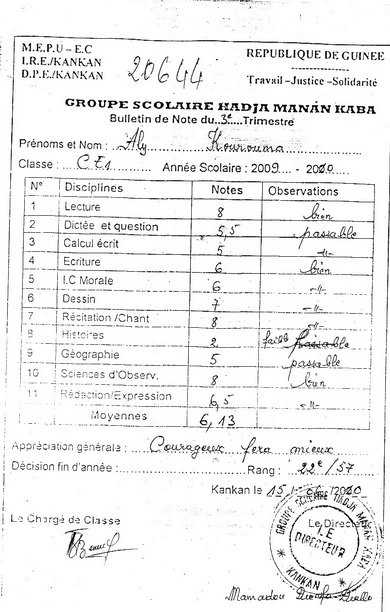 M.E.P.U – E.C
I.R.E./KANKAN
D.P.E./KANKAN
20644
REPUBLIQUE DE GUINEE
Travail –Justice –Solidarité
GROUPE SCOLAIRE HADJA MANÁN KABA
Bulletin de Note du..3e..Trimestre
Prénoms et Nom : Aly Kourouma
Classe : CE1 Année Scolaire : 2009 - 2010
N° Disciplines Notes Observations
1 Lecture 8 bien
2 Dictée et question 5,5 passable
3 Calcul écrit 5 -"-
4 Ecriture 6 bien
5 I.C Morale 6 -"-
6 Dessin 7 -"-
7 Récitation /Chant 8 -"-
8 Histoires 2 faible passable
9 Géographie 5 passable
10 Sciences d'Observ. 8 bien
11 Rédaction/Expression 6,5 -"-
Moyennes 6,13
Appréciation générale : Courageux fera mieux
Décision fin d'année : Rang : 22e/57
Kankan le 15 /2010
Le Chargé de Classe Le Directeur
GROUPE SCOLAIRE HADJA MANAN KABA
LE DIRECTEUR
* KANKAN *
Mamadou Diallo